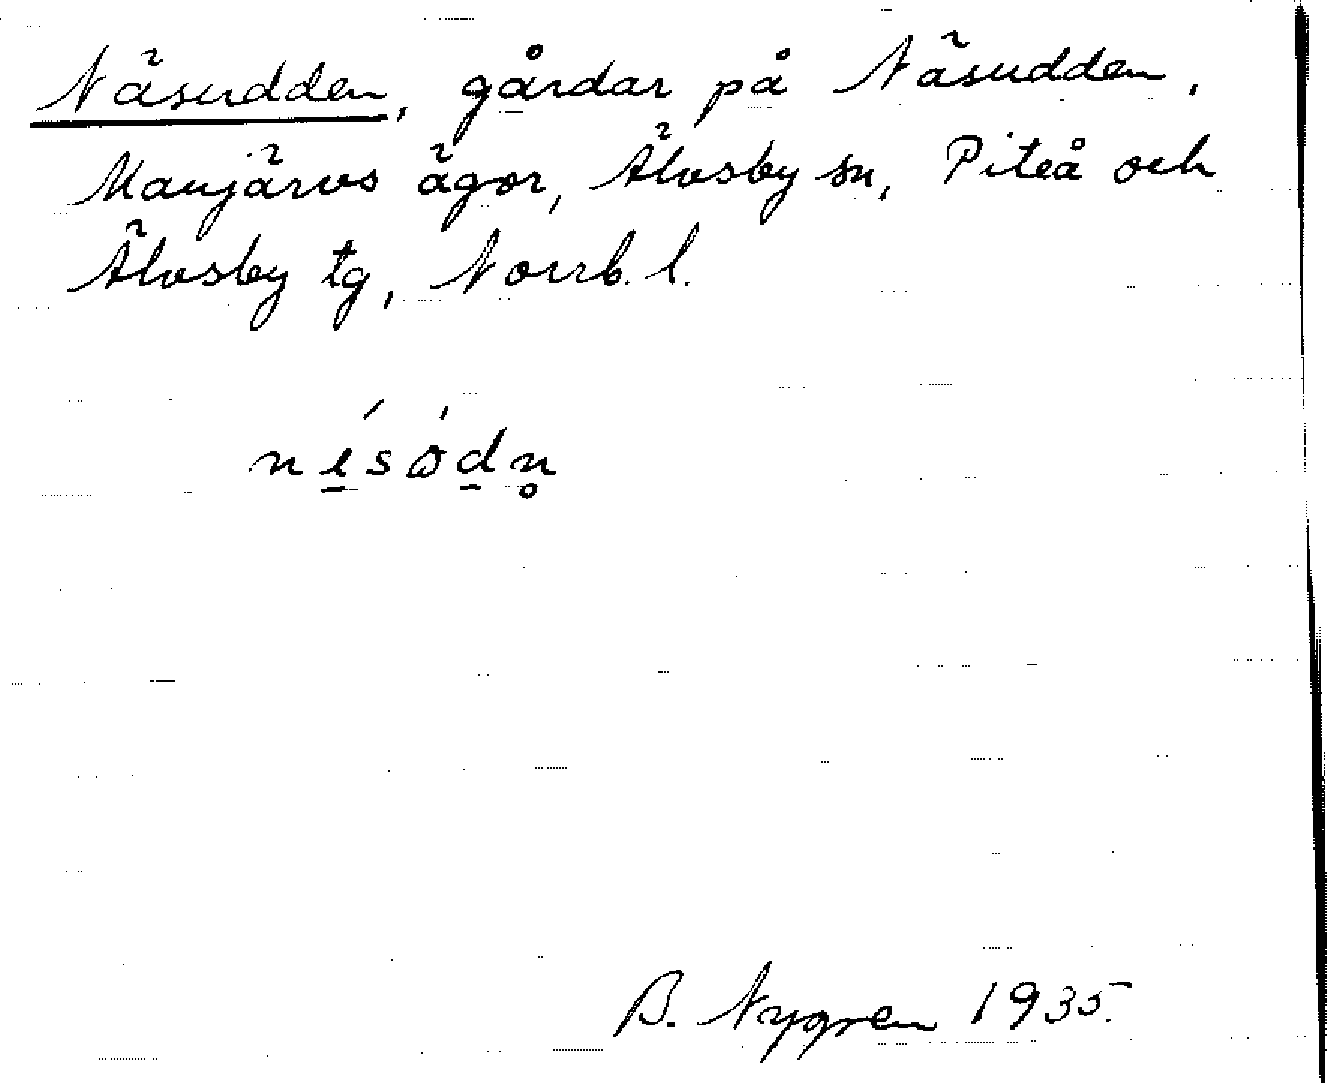 Näsudden, gårdar på Näsudden,
Manjärvs ägor, Älvsby sn, Piteå och
Älvsby tg, Norrb. l.
B. Nygren 1935.